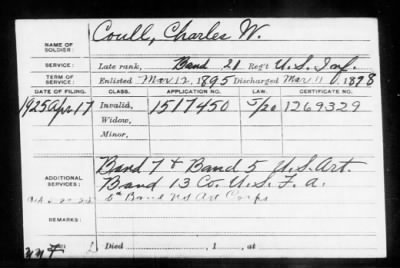 NAME OF SOLDIER: Coull, Charles W.
SERVICE: Late rank, Band 21 Reg't U.S. Inf.
TERM OF SERVICE: Enlisted Mar 12, 1895 Discharged Mar 11, 1898
DATE OF FILING. CLASS. APPLICATION NO. LAW. CERTIFICATE NO.
1925 Apr. 17 Invalid, 1517450 1269329
Widow,
Minor,
ADDITIONAL SERVICES: Band 7 + Band 5 U.S. Art.
Band 13 Co. U.S. F. A.
5th Band U S Art Corps
REMARKS:
Died , 1 , at